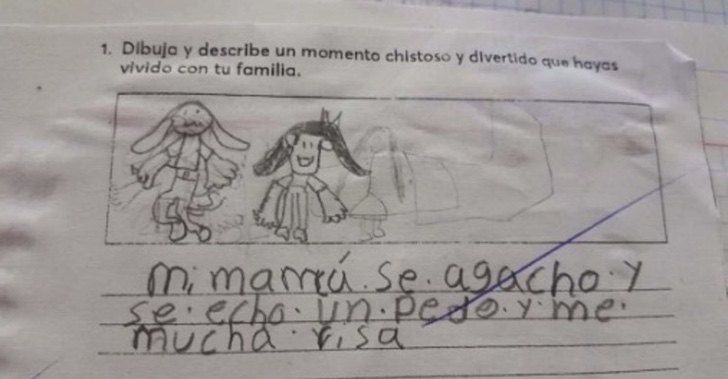 1. Dibuja y describe un momento chistoso y divertido que hayas
vivido con tu familia.
mi mamá.se.agacho.y
se.echo.un.pedo.y.me.
mucha.risa